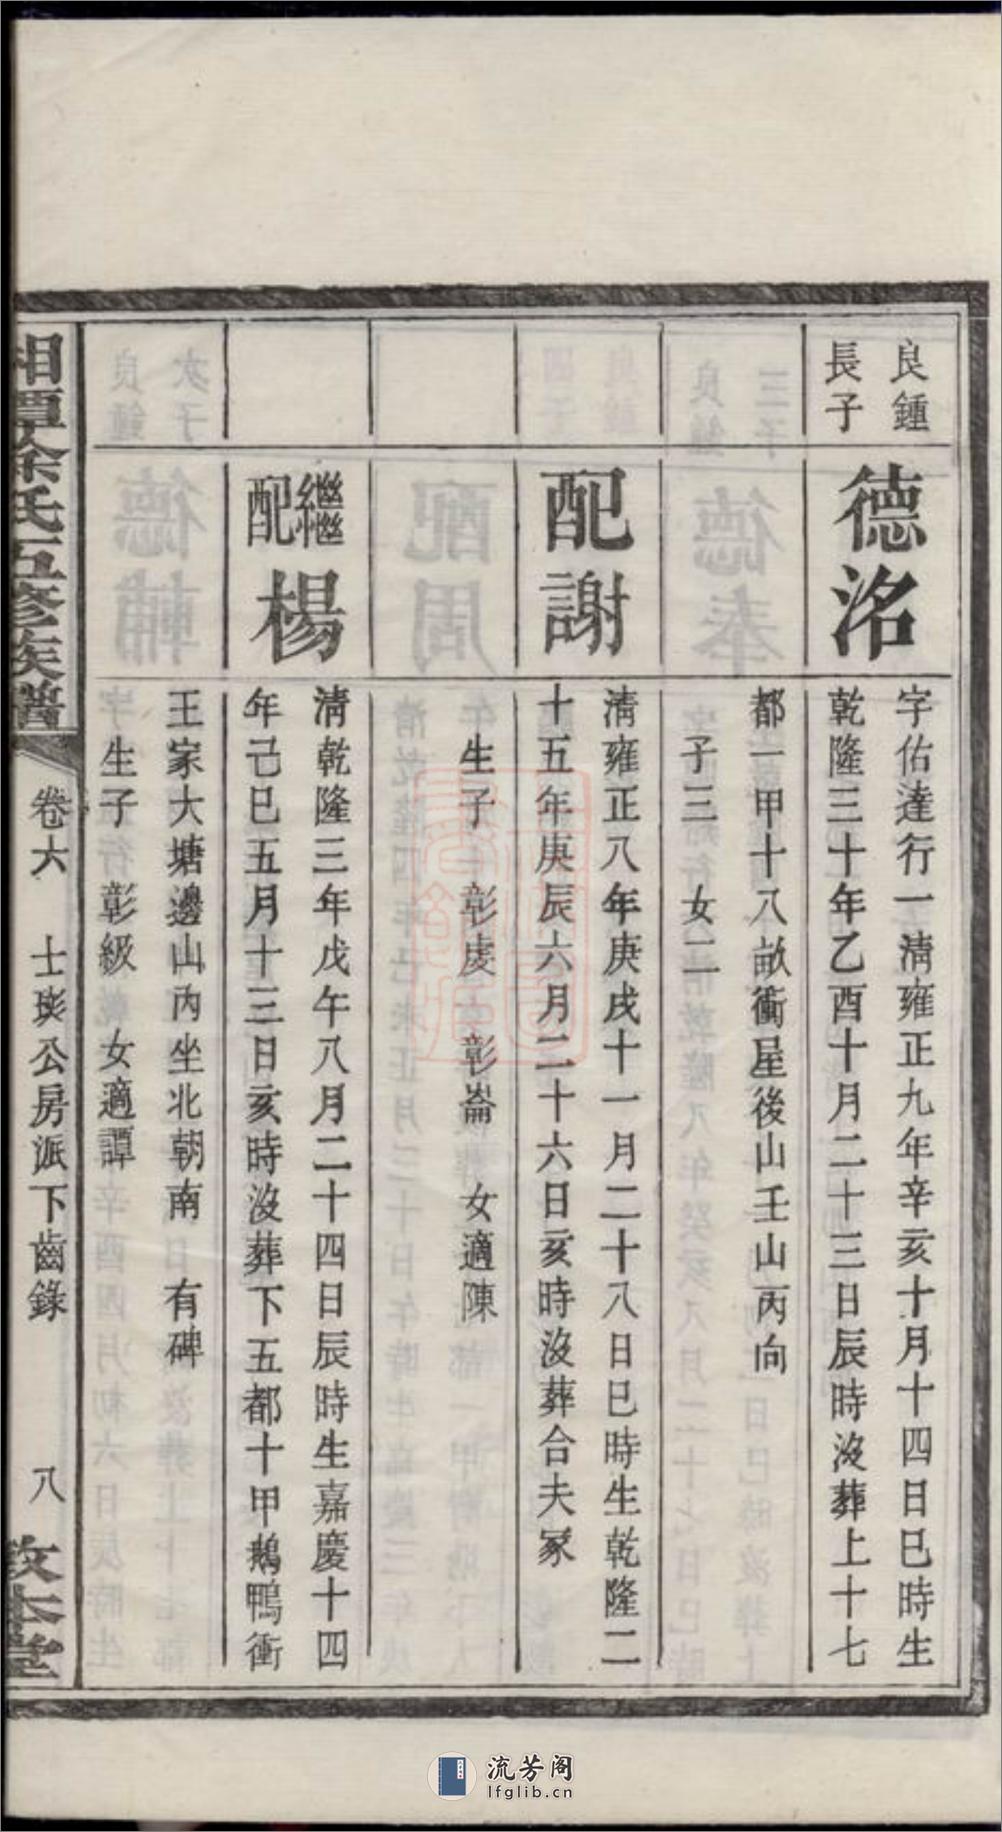 良鍾
長子
德洺
字佑達行一清雍正九年辛亥十月十四日巳時生
乾隆三十年乙酉十月二十三日辰時沒葬上十七
都一甲十八畝衝屋後山壬山丙向
子三 女二
配謝
清雍正八年庚戌十一月二十八日巳時生乾隆二
十五年庚辰六月二十六日亥時沒葬合夫冢
生子 彰虔 彰崙 女適陳
繼配楊
清乾隆三年戊午八月二十四日辰時生嘉慶十四
年己巳五月十三日亥時沒葬下五都十甲鵝鴨衝
王家大塘邊山內坐北朝南 有碑
生子 彰級 女適譚
湘潭徐氏五修族譜
卷六 士琰公房派下齒錄 八
敦本堂
流芳阁
lfglib.cn